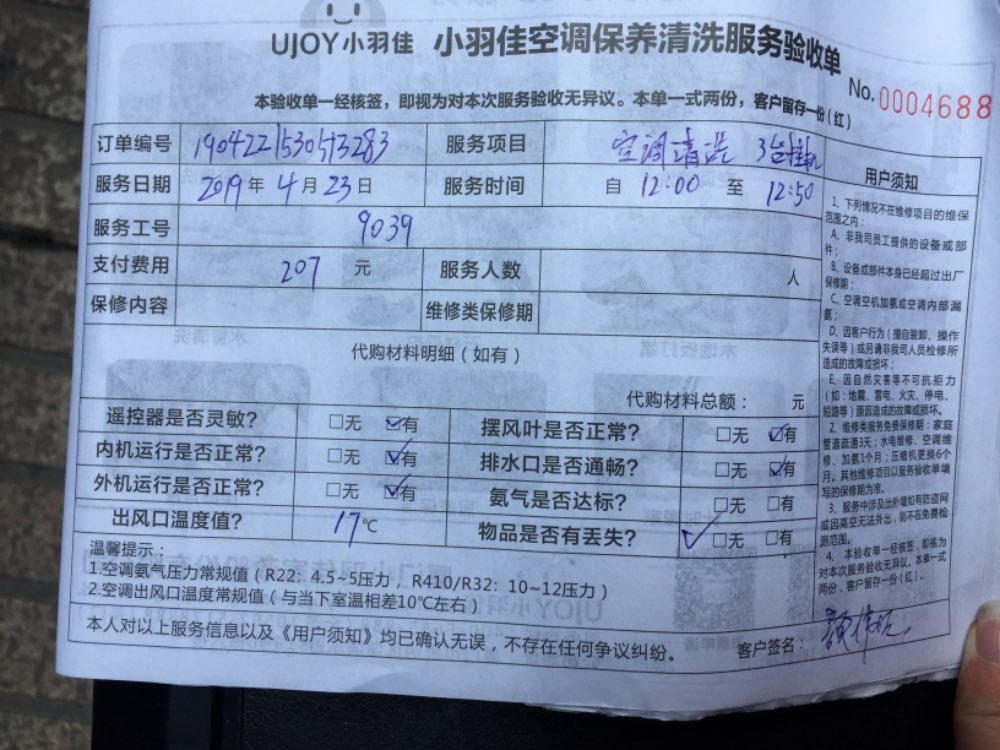 UJOY小羽佳 小羽佳空调保养清洗服务验收单
No.0004688
本验收单一经核签，即视为对本次服务验收无异议。本单一式两份，客户留存一份（红）
订单编号 190422153051283 服务项目 空调清洗 3台挂机
服务日期 2019年4月23日 服务时间 自 12:00 至 12:50
服务工号 9039
支付费用 207 元 服务人数 人
保修内容 维修类保修期
代购材料明细（如有）
代购材料总额： 元
遥控器是否灵敏？ □无 ☑有 摆风叶是否正常？ □无 ☑有
内机运行是否正常？ □无 ☑有 排水口是否通畅？ □无 ☑有
外机运行是否正常？ □无 ☑有 氨气是否达标？ □无 □有
出风口温度值？ 17℃ 物品是否有丢失？ ✓□无 □有
温馨提示：
1.空调氨气压力常规值（R22：4.5~5压力，R410/R32：10~12压力）
2.空调出风口温度常规值（与当下室温相差10℃左右）
本人对以上服务信息以及《用户须知》均已确认无误，不存在任何争议纠纷。 客户签名：
用户须知
1、下列情况不在维修项目的维保
范围之内：
A、非我司员工提供的设备或部
件；
B、设备或部件本身已经超过出厂
保修期；
C、空调空机加氨或空调内部漏
氨；
D、因客户行为（擅自装卸、操作
失误等）或另请非我司人员检修所
造成的故障或损坏；
E、因自然灾害等不可抗拒力
（如：地震、雷电、火灾、停电、
短路等）原因造成的故障或损坏。
2、维修类服务免费保修期：家庭
管道疏通3天；水电维修、空调维
修、加氨1个月；压缩机更换6个
月。其他维修项目以服务验收单填
写的保修期为准。
3、服务中涉及出外墙如有防盗网
或因高空无法外出，则不在免费检
测范围。
4、本验收单一经核签，即视为
对本次服务验收无异议。本单一式
两份，客户留存一份（红）。